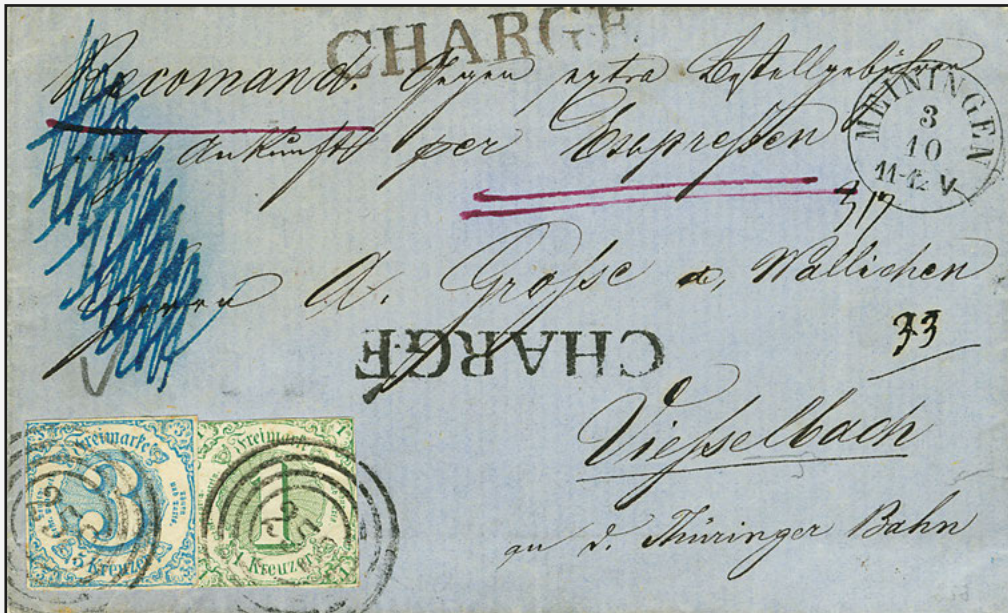 CHARGE
Recomand. Gegen extra Bestellgebühren
nach Ankunft per Expreßen
MEININGEN
3
10
11-12 V
317
Herrn A. Große Wallichen
CHARGE
33
Vießelbach
an d. Thüringer Bahn
Freimarke
3
3 Kreuzer
Freimarke
1
1 Kreuzer